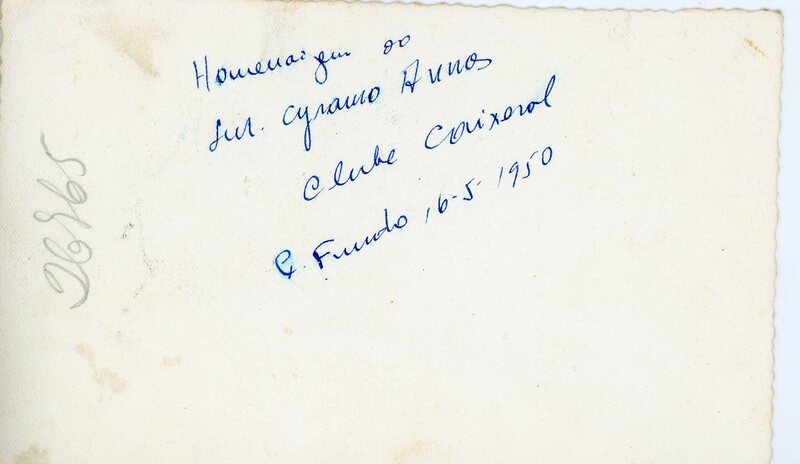 Homenaigem ao
Snr. Cyrano Annes
Clube Caixeral
P. Fundo, 16-5-1950
26765